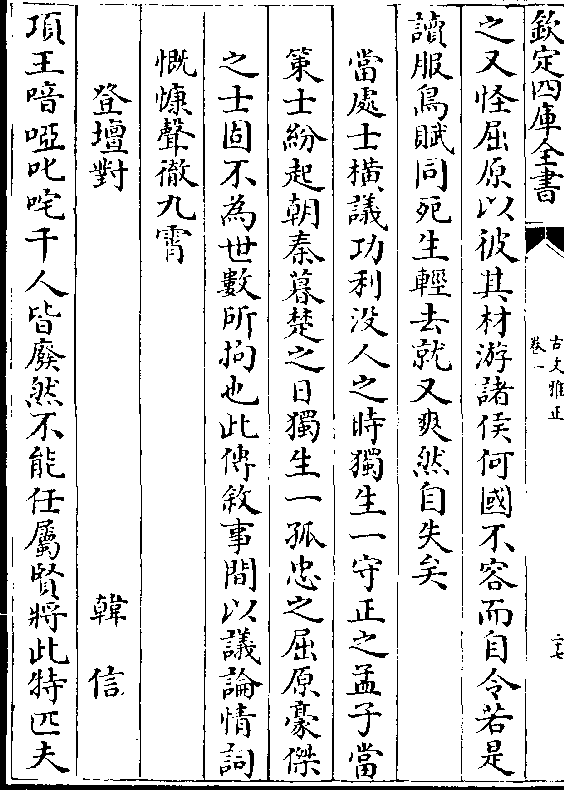 欽定四庫全書
古文雅正
卷一
二十七
之又怪屈原以彼其材游諸侯何國不容而自令若是
讀服鳥賦同死生輕去就又爽然自失矣
當處士橫議功利没人之時獨生一守正之孟子當
策士紛起朝秦暮楚之日獨生一孤忠之屈原豪傑
之士固不為世數所拘也此傳敘事間以議論情詞
慨慷聲徹九霄
登壇對 韓信
項王喑啞叱咤千人皆廢然不能任屬賢將此特匹夫